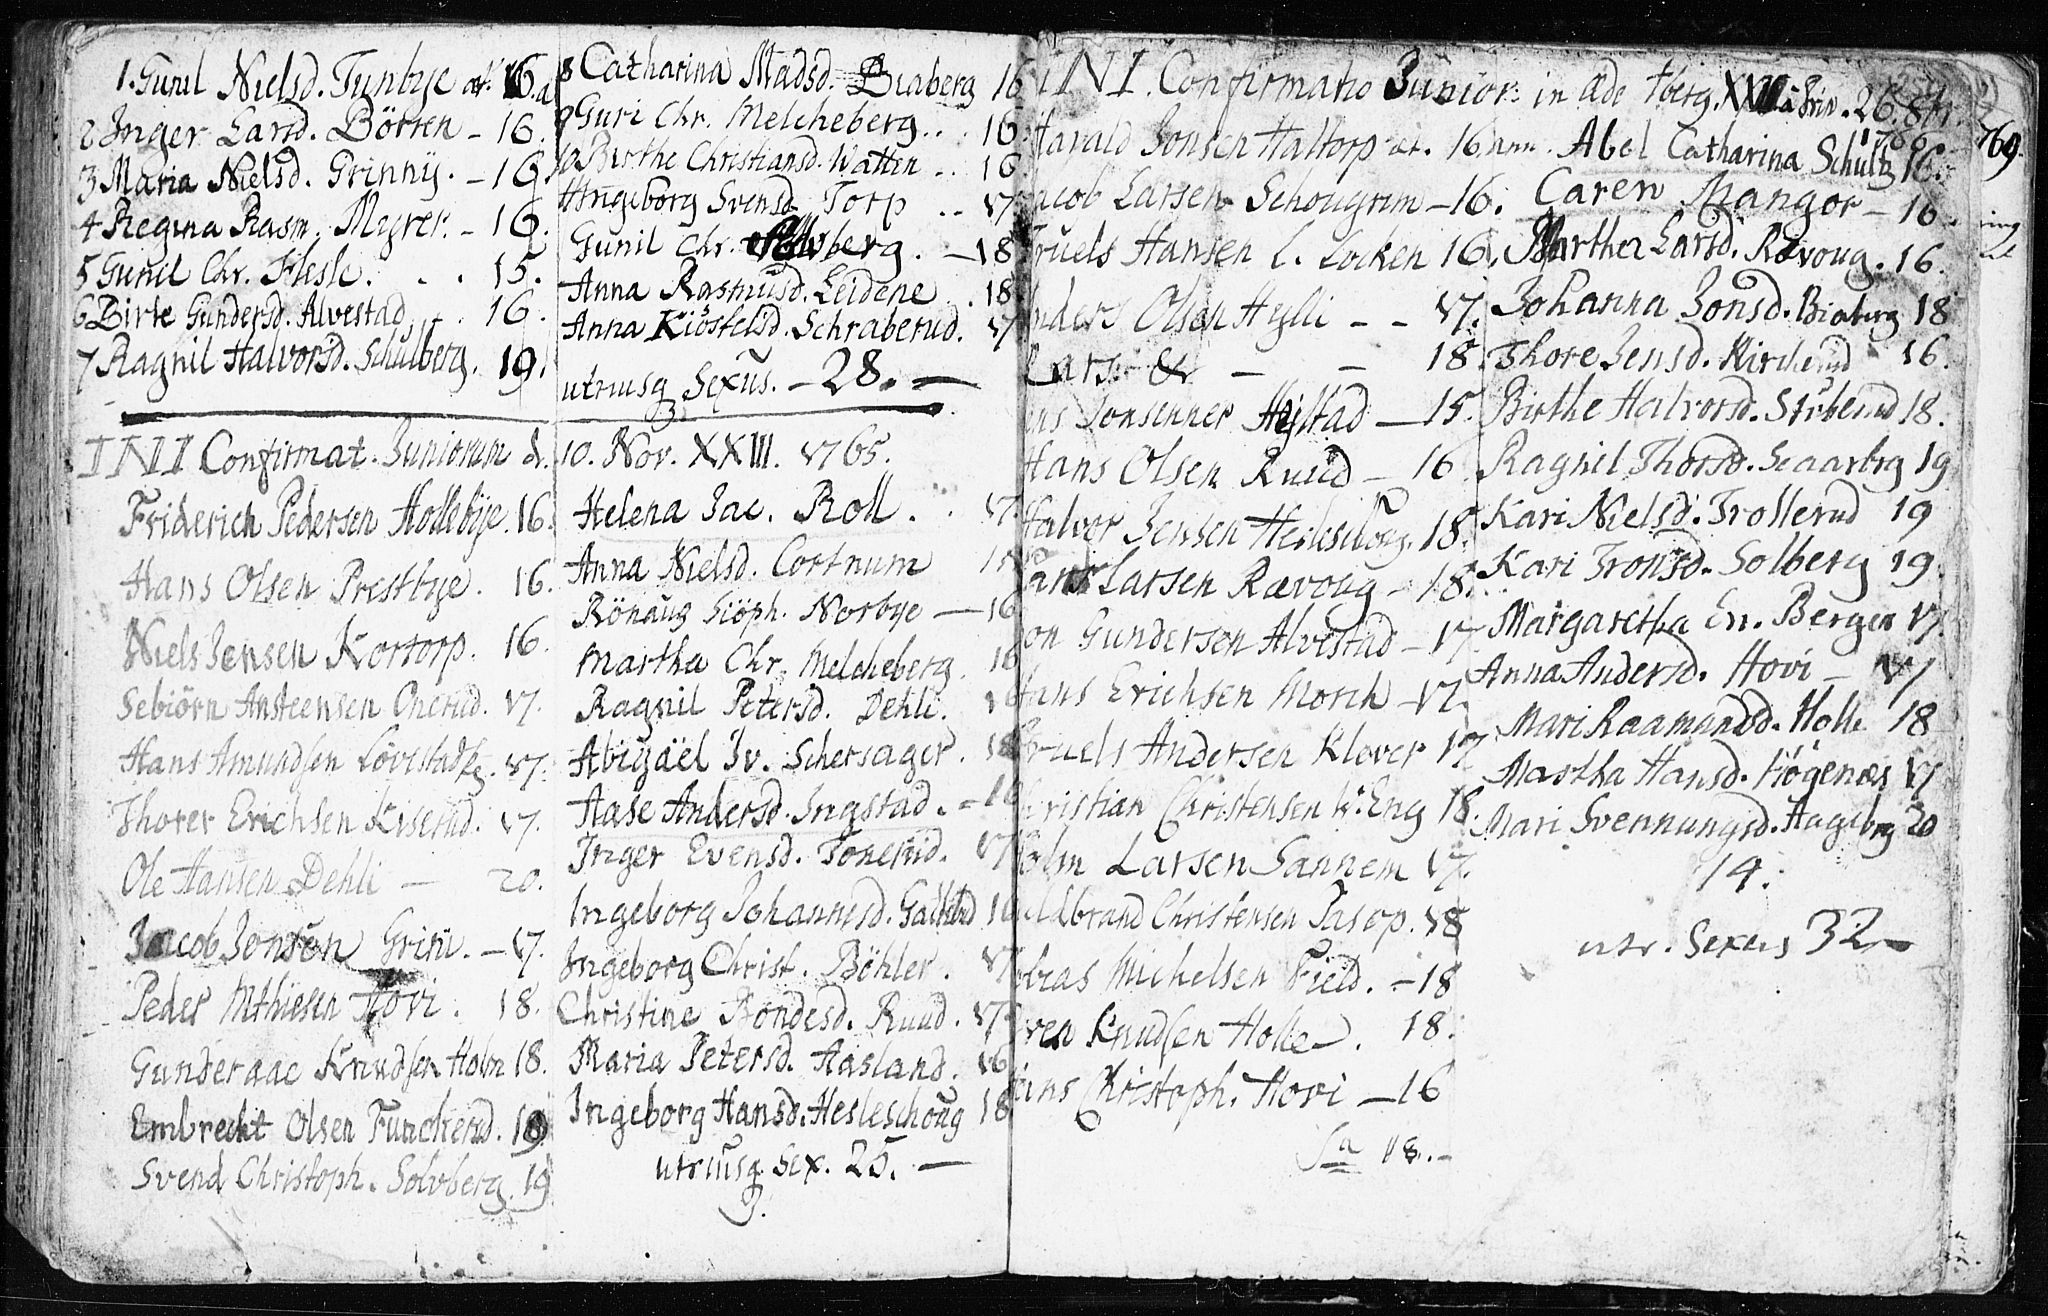 1. Gunil Nielsd. Tunbye æt. 16. a
2 Inger Larsd. Börten - 16.
3 Maria Nielsd. Grinny. - 16.
4 Regina Rasm. Myrer. - 16.
5 Gunil Chr. Flesk. . . 15.
6 Birte Gundersd. Alvestad . 16.
7 Ragnil Halvorsd. Schulberg. 19.
8 Catharina Madsd. Biaberg 16
9 Guri Chr. Melcheberg. . . 16.
10 Birthe Christiansd. Watten . . 16.
Ingeborg Svensd. Torp . . 17
Gunil Chr. berg. — 18
Anna Rasmusd. Leidene . 18
Anna Kiöstelsd. Schraberud. 17
utriusq Sexus. — 28. —
INI Confirmat. Juniorum d. 10. Nov. XXIII. 1765.
Friderich Pedersen Hollebye. 16.
Hans Olsen Prestbye. 16.
Niels Jensen Kortorp. 16.
Sebiörn Ansteensen Onerud. 17.
Hans Amundsen Lövestad . 17.
Thorer Erichsen Kiserud. 17.
Ole Hansen Dehli — 20.
Jacob Jonsen Grini. — 17.
Peder Mthiesen Hovi. 18.
Gunderaac Knudsen Holm 18.
Embrecht Olsen Funcherud. 19
Svend Christoph. Solvberg. 19
Helena Jac. Roll . . 17.
Anna Nielsd. Cortnum
Rönaug Siöph. Norbye — 16
Martha Chr. Melcheberg. 16
Ragnil Petersd. Dehli. 16
Abigaël Iv. Schersager. 18
Aase Andersd. Ingstad. — 16
Inger Evensd. Tonerud. 17
Ingeborg Johannesd. 16
Ingeborg Christ. Böhler. 17
Christine Bondesd. Ruud. 17
Maria Petersd. Aasland. 16
Ingeborg Hansd. Hesleschoug 18
utriusq Sex. 25. —
INI. Confirmatio Junior: in æde Tberg. à Trin. 26. 8br.
1766
Harald Jonsen Haltorp æt. 16. ann.
Jacob Larsen Schougrim — 16.
Truels Hansen L. Locken 16.
Anders Olsen Hylli — — 17.
Lars — — 18.
Jens Jonsenner Hejstad — 15.
Hans Olsen Ruud — 16
Halvor Jensen Hesleschoug. 18.
Hans Larsen Rævoug — 18.
Jon Gundersen Alvestad — 17
Hans Erichsen Morch — 17.
Truels Andersen Klover 17
Christian Christensen W. Eng 18.
Holm Larsen Sannem 17.
Hildbrand Christensen Tasop. 18
Tobias Michelsen Field. — 18
Sven Knudsen Holle. 18.
Hans Christoph. Hovi — 16
Sa 18. —
Abel Catharina Schultz 16.
Caren Mangor — 16.
Marthea Larsd. Rævoug. 16.
Johanna Jonsd. Biaberg 18
Thore Jensd. Kircherud 16.
Birthe Halvorsd. Stuberud 18.
Ragnil Thorsd. Scaarbrg 19
Kari Nielsd. Trollerud 19
Kari Tronsd. Solberg 19.
Margaretha En. Bergen 17.
Anna Andersd. Hovi — 17
Mari Raamundsd. Holle 18
Martha Hansd. Högenæs 17
Mari Svennungsd. Hageberg 20
14.
utr. Sexus 32 —
769.